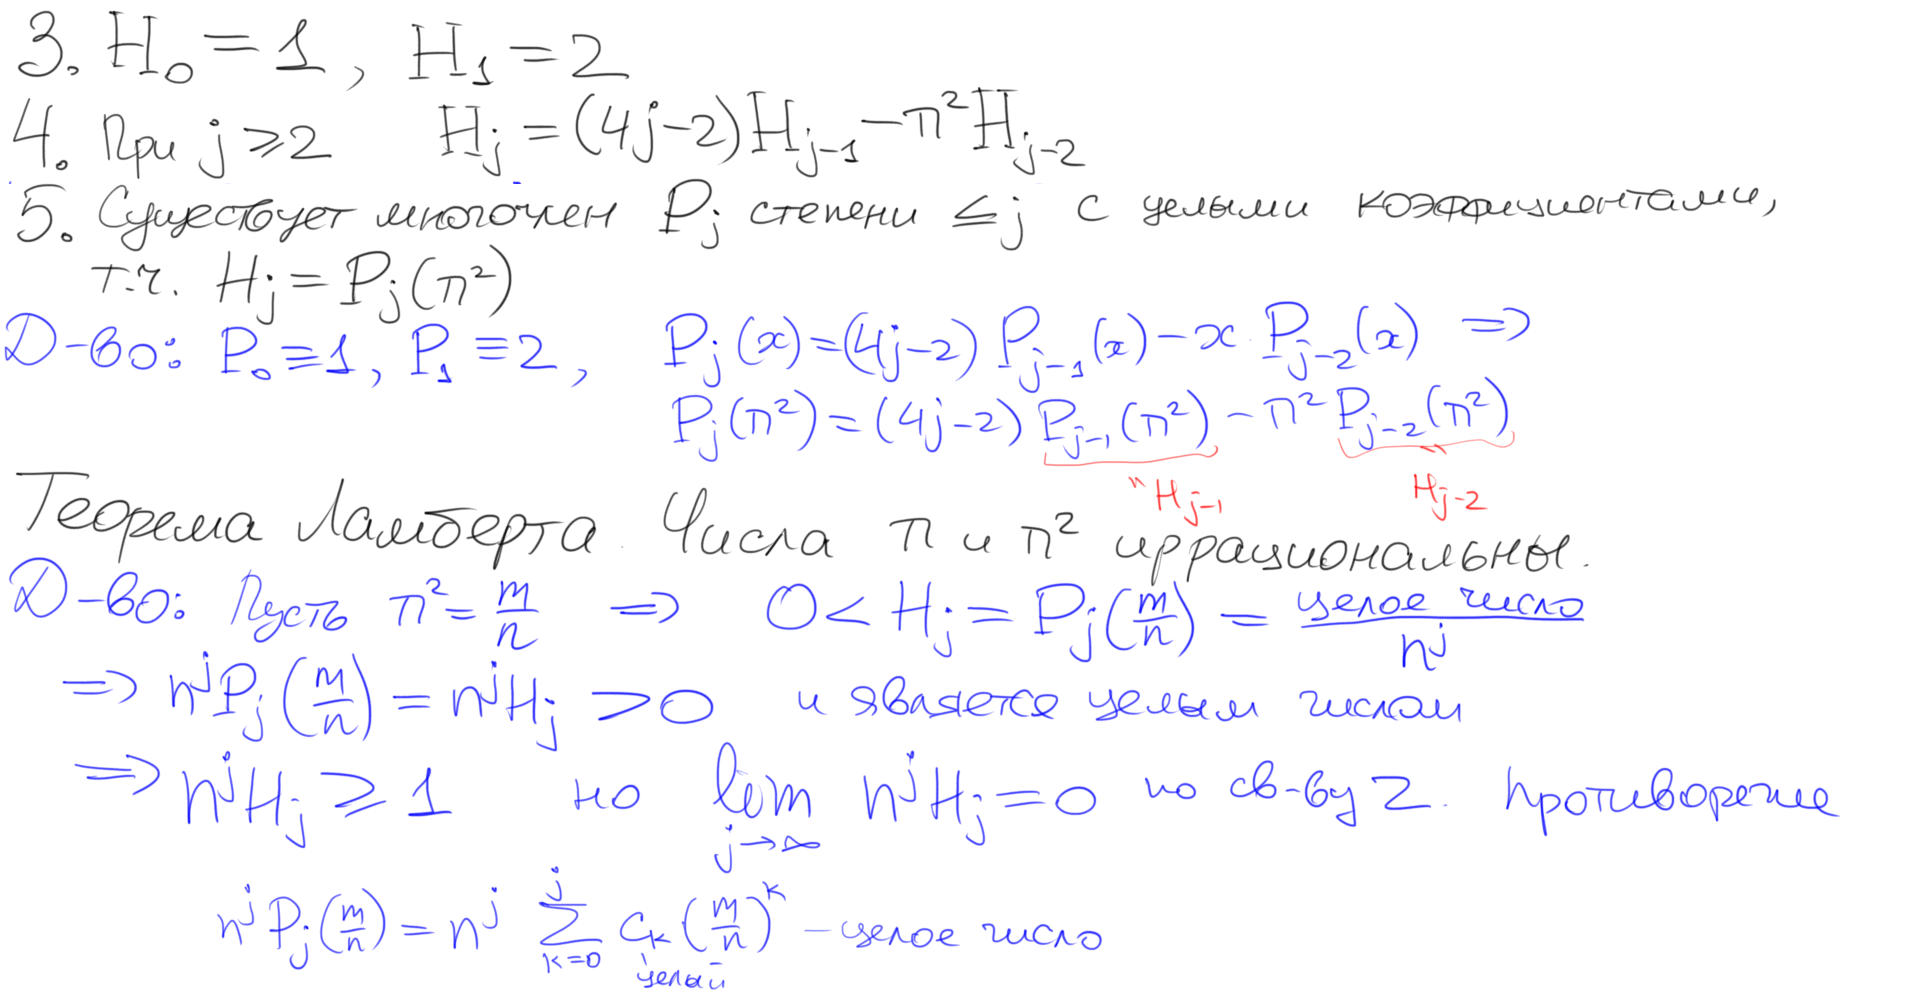 3. H₀ = 1, H₁ = 2
4. При j ⩾ 2 H_j = (4j-2)H_{j-1} - π²H_{j-2}
5. Существует многочлен P_j степени ≤ j с целыми коэффициентами,
т.ч. H_j = P_j(π²)
Д-во: P₀ ≡ 1, P₁ ≡ 2, P_j(x) = (4j-2) P_{j-1}(x) - x P_{j-2}(x) ⇒
P_j(π²) = (4j-2) P_{j-1}(π²) - π² P_{j-2}(π²)
" H_{j-1} " H_{j-2}
Теорема Ламберта. Числа π и π² иррациональны.
Д-во: Пусть π² = m/n ⇒ 0 < H_j = P_j(m/n) = целое число/n^j
⇒ n^j P_j(m/n) = n^j H_j > 0 и является целым числом
⇒ n^j H_j ⩾ 1 но lim_{j→∞} n^j H_j = 0 по св-ву 2. Противоречие
n^j P_j(m/n) = n^j ∑_{k=0}^{j} c_k (m/n)^k - целое число
целый